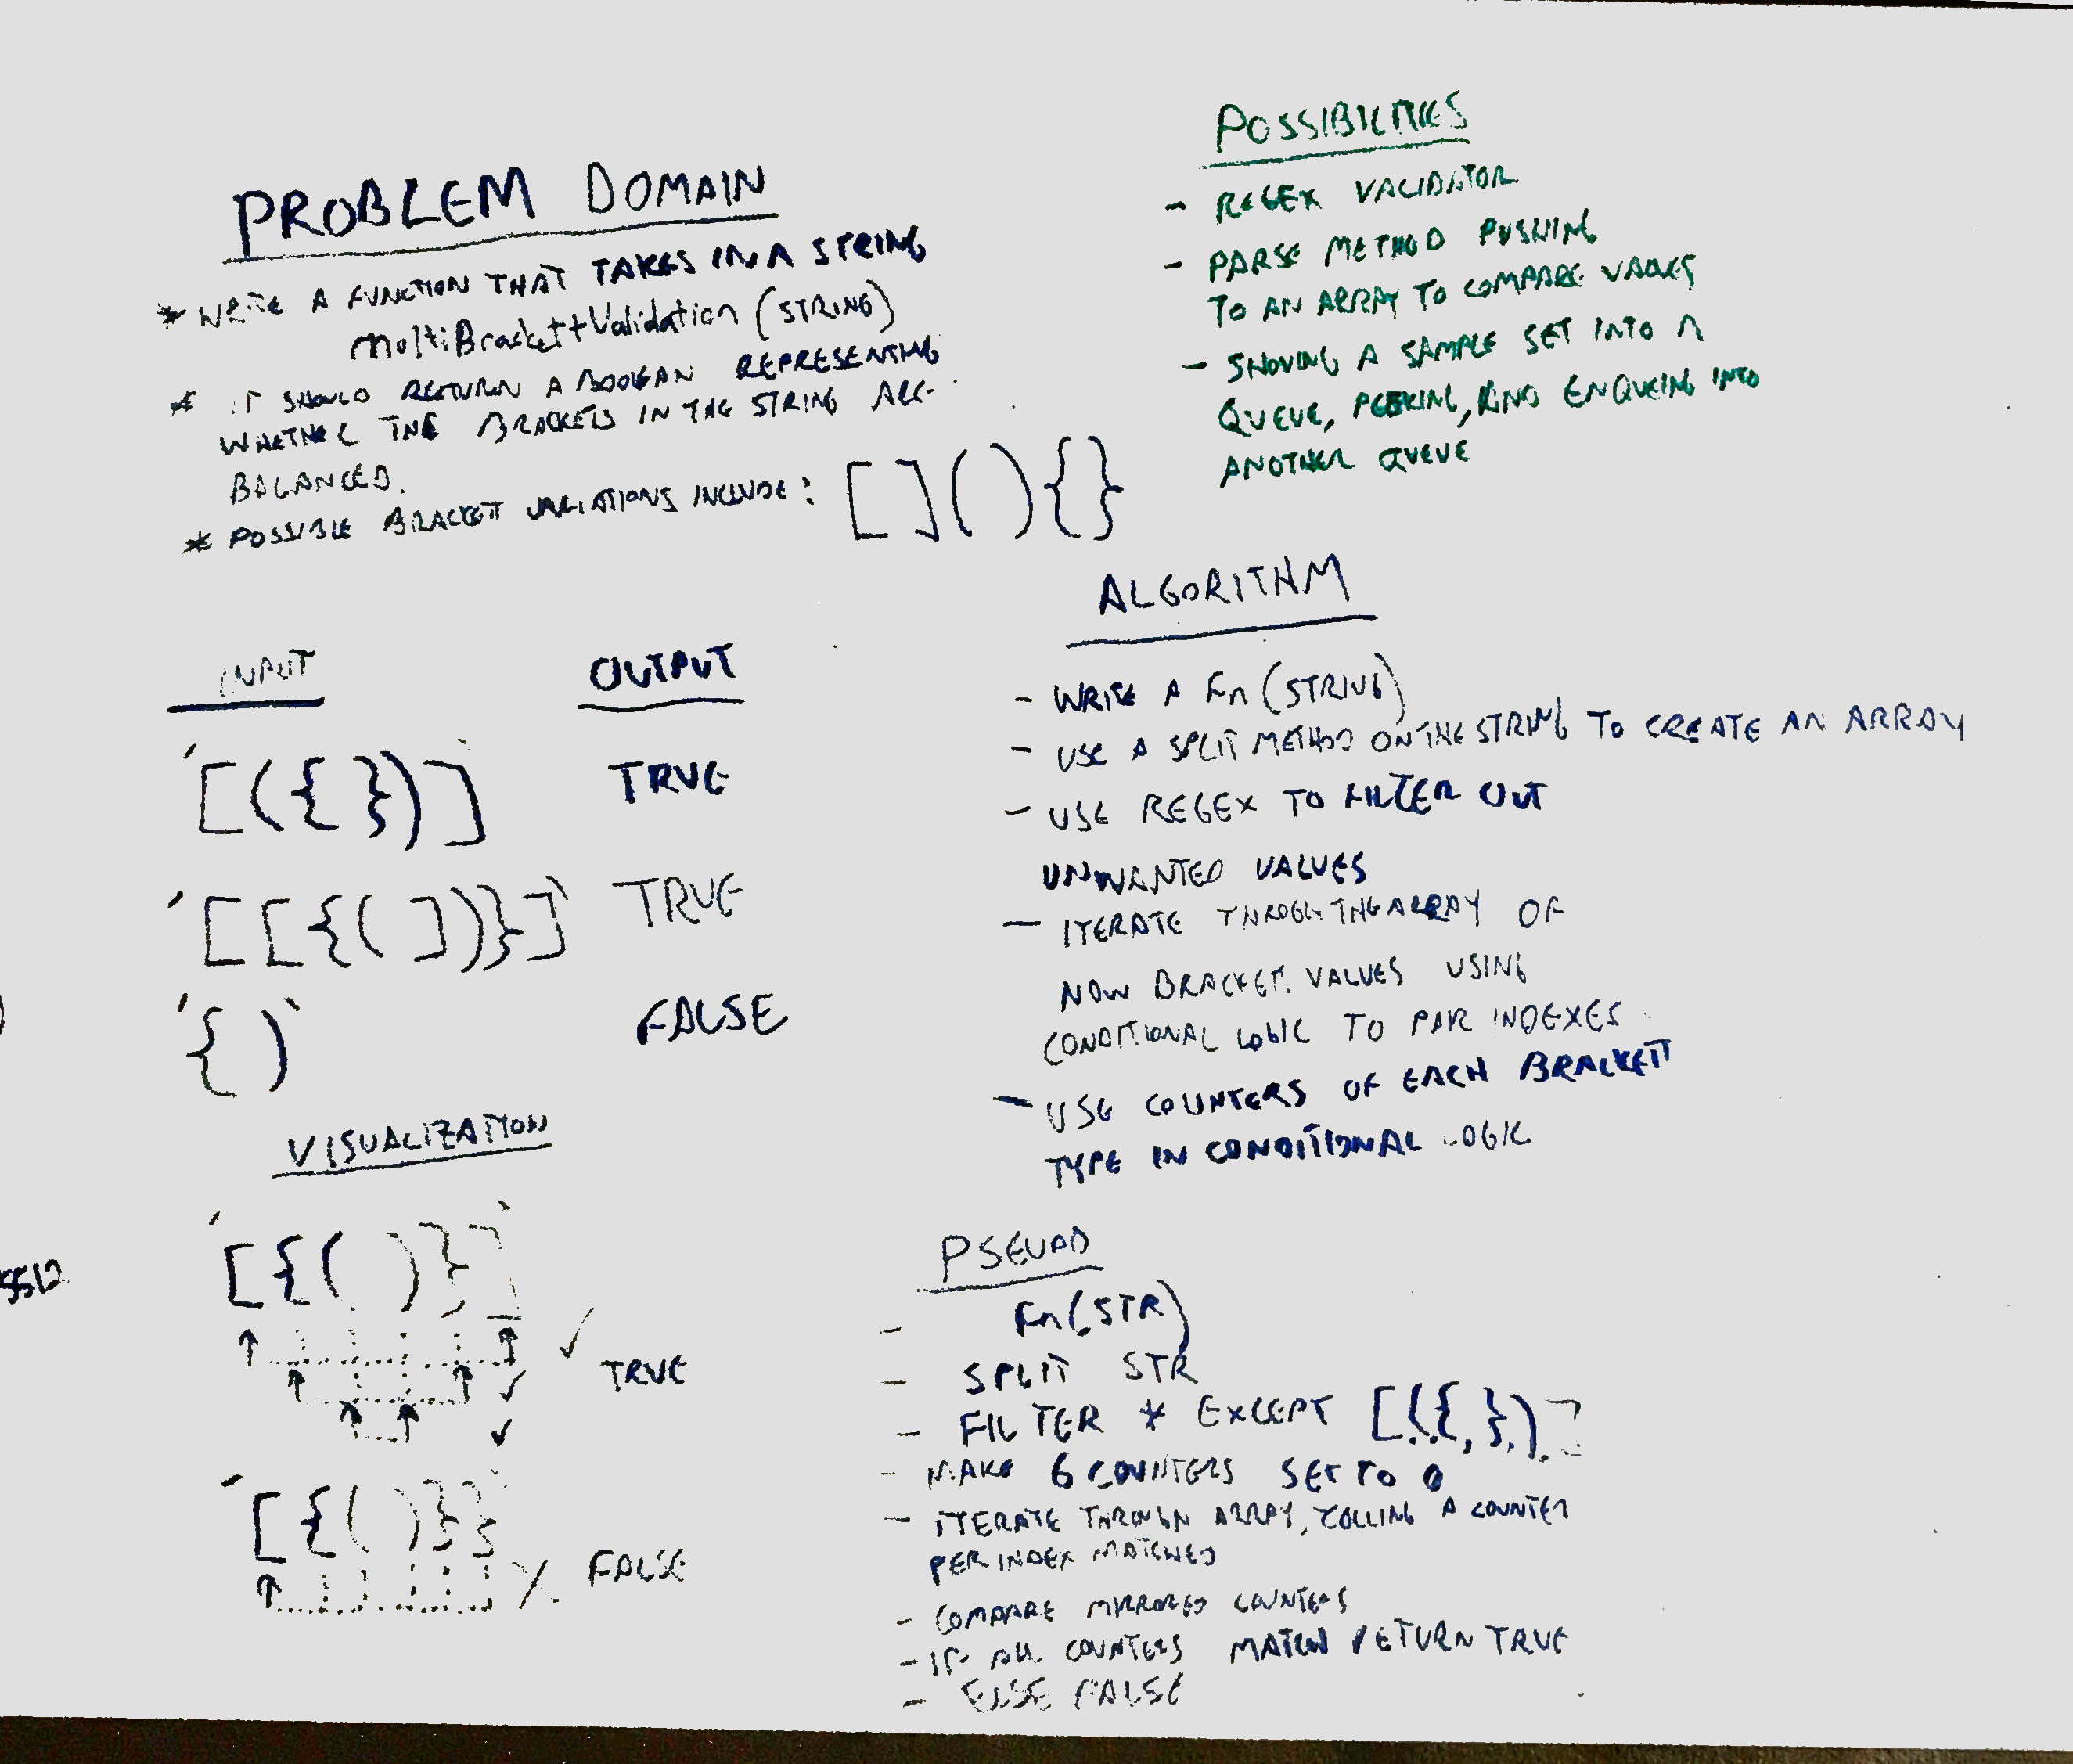 PROBLEM DOMAIN
* WRITE A FUNCTION THAT TAKES IN A STRING
MultiBrackettValidation (STRING)
* IT SHOULD RETURN A BOOLEAN REPRESENTING
WHETHER THE BRACKETS IN THE STRING ARE
BALANCED.
* POSSIBLE BRACKETT VARIATIONS INCLUDE: [ ] ( ) { }
INPUT OUTPUT
'[({})]' TRUE
'[[{(])}]' TRUE
'{)' FALSE
VISUALIZATION
'[{()}]'
✓
TRUE
✓
✓
'[{()}}'
X FALSE
POSSIBILITIES
- REGEX VALIDATOR
- PARSE METHOD PUSHING
TO AN ARRAY TO COMPARE VALUES
- SHOVING A SAMPLE SET INTO A
QUEUE, PEEKING, AND ENQUEING INTO
ANOTHER QUEUE
ALGORITHM
- WRITE A Fn (STRING)
- USE A SPLIT METHOD ON THE STRING TO CREATE AN ARRAY
- USE REGEX TO FILTER OUT
UNWANTED VALUES
- ITERATE THROUGH THE ARRAY OF
NOW BRACKET VALUES USING
CONDITIONAL LOGIC TO PAIR INDEXES
- USE COUNTERS OF EACH BRACKETT
TYPE IN CONDITIONAL LOGIC
PSEUDO
- Fn(STR)
- SPLIT STR
- FILTER * EXCEPT [,(,{,},),]
- MAKE 6 COUNTERS SET TO 0
- ITERATE THROUGH ARRAY, A COUNTER
PER INDEX MATCHED
- COMPARE MIRRORED COUNTERS
- IF ALL COUNTERS MATCH RETURN TRUE
- ELSE FALSE